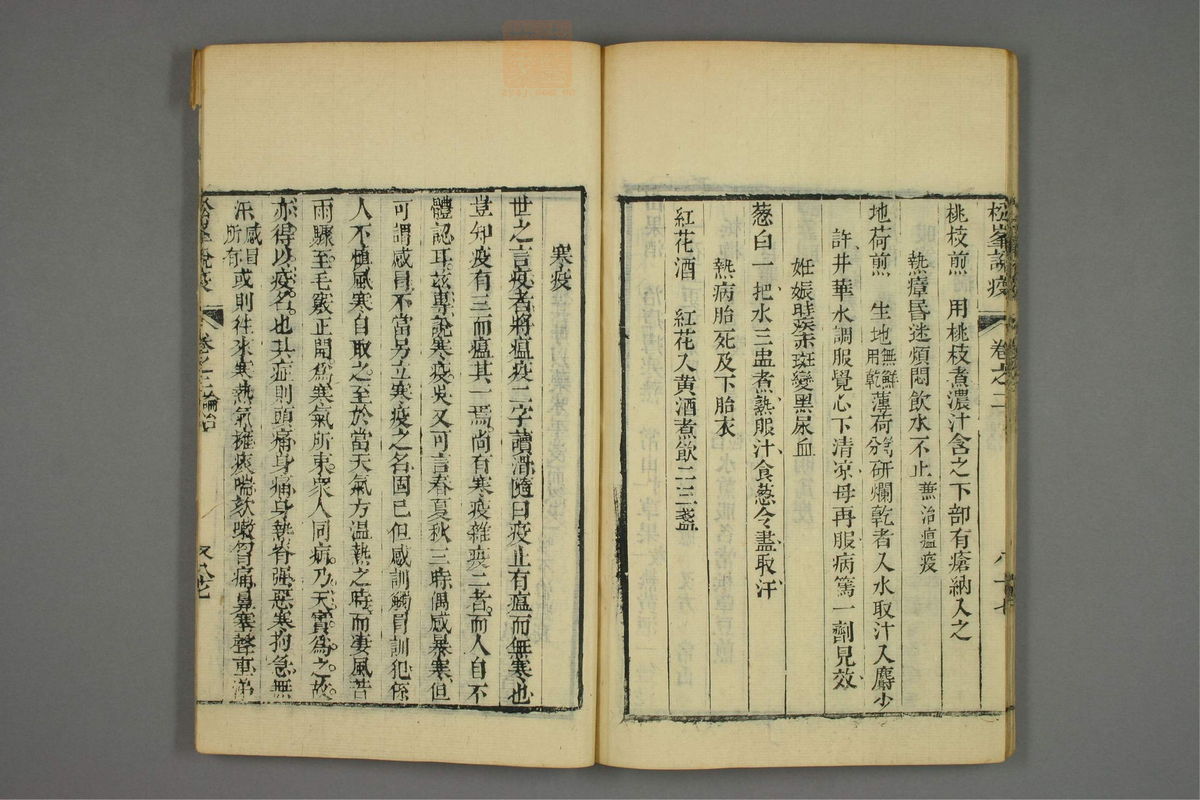 松峯說疫 卷之二
桃枝煎 用桃枝煮濃汁含之下部有瘡納入之
熱瘴昏迷煩悶飲水不止兼治瘟疫
地荷煎 生地無鮮用乾薄荷研爛乾者入水取汁入麝少
許井華水調服覺心下清凉母再服病篤一劑見效
妊娠時疾赤斑變黑尿血
葱白一把水三盅煮熟服汁食葱令盡取汗
熱病胎死及下胎衣
紅花酒 紅花入黄酒煮飲二三盞
寒疫
世之言疫者將瘟疫二字讀滑隨曰疫止有瘟而無寒也
豈知疫有三而瘟其一焉尚有寒疫雜疫二者而人自不
體認耳兹專說寒疫吳又可言春夏秋三時偶感暴寒但
可謂感冒不當另立寒疫之名固已但感訓觸冒訓犯係
人不慎風寒自取之至於當天氣方温熱之時而凄風苦
雨驟至毛竅正開爲寒氣所束衆人同病乃天實爲之故
亦得以疫名也其症則頭痛身痛身熱脊強惡寒拘急無
汗感冒所有或則往來寒熱氣擁痰喘欬嗽胸痛鼻塞聲重涕
松峯說疫 卷之二論治